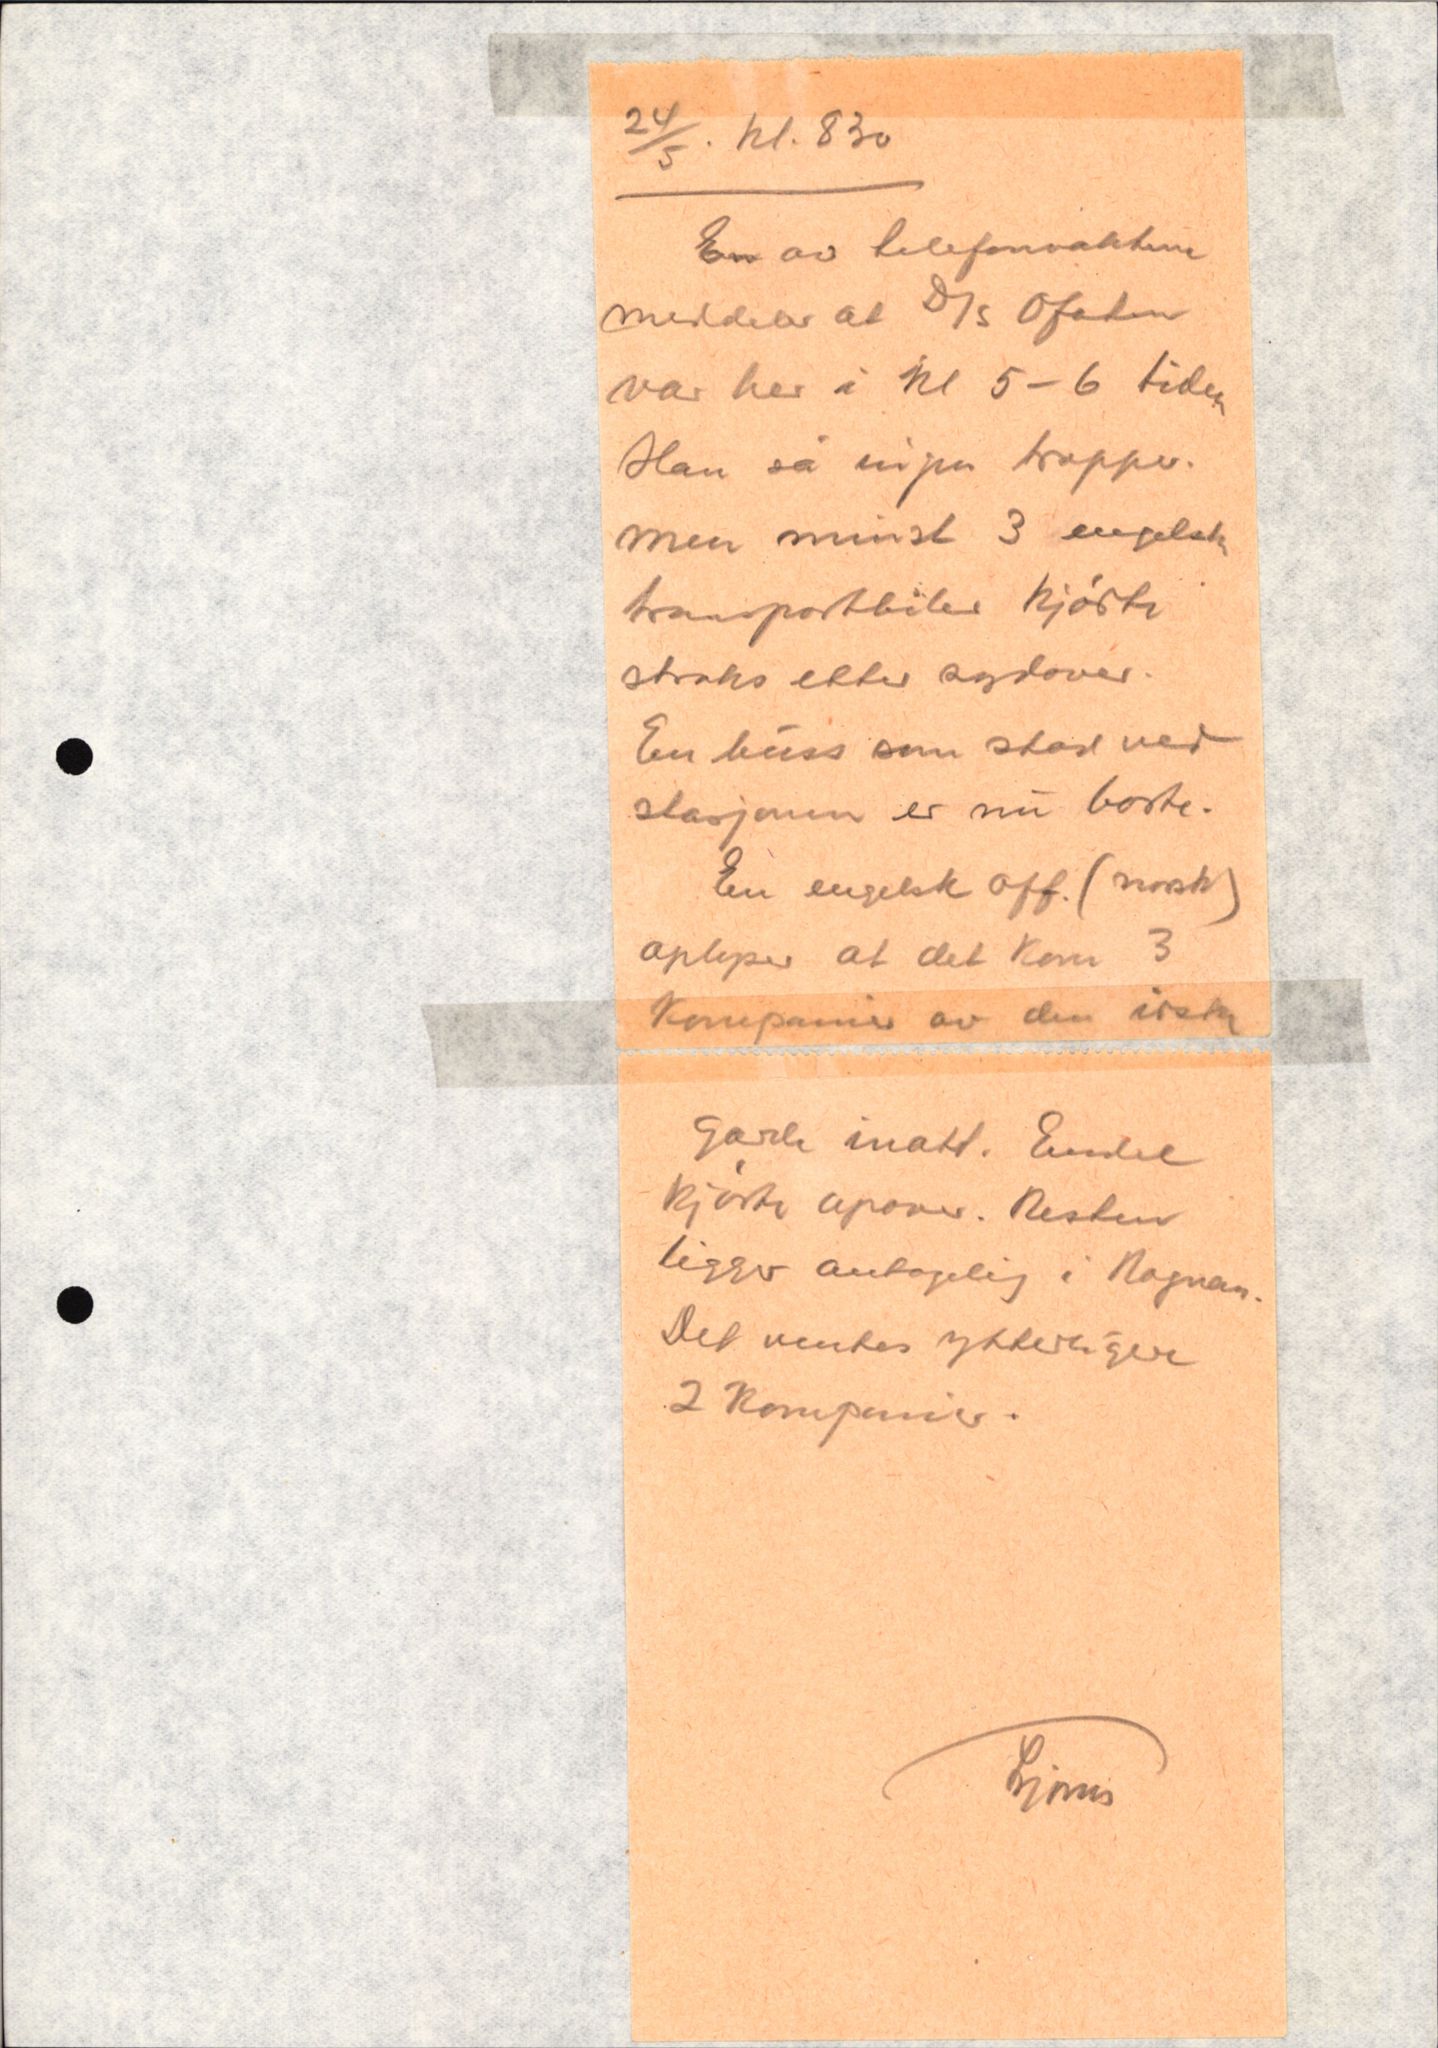 24/5. kl. 830
En av telefonvaktene
meddeler at D/S Ofoten
var her i kl 5-6 tiden
Han så ingen tropper.
men minst 3 engelsk
transportbiler kjørte
straks etter sydover.
En buss som stod ved
stasjonen er nu borte.
En engelsk off. (norsk)
oplyser at det kom 3
kompanier av den irske
garde inatt. Endel
kjørte opover. Resten
ligger antagelig i Rognan.
Det ventes ytterligere
2 kompanier.